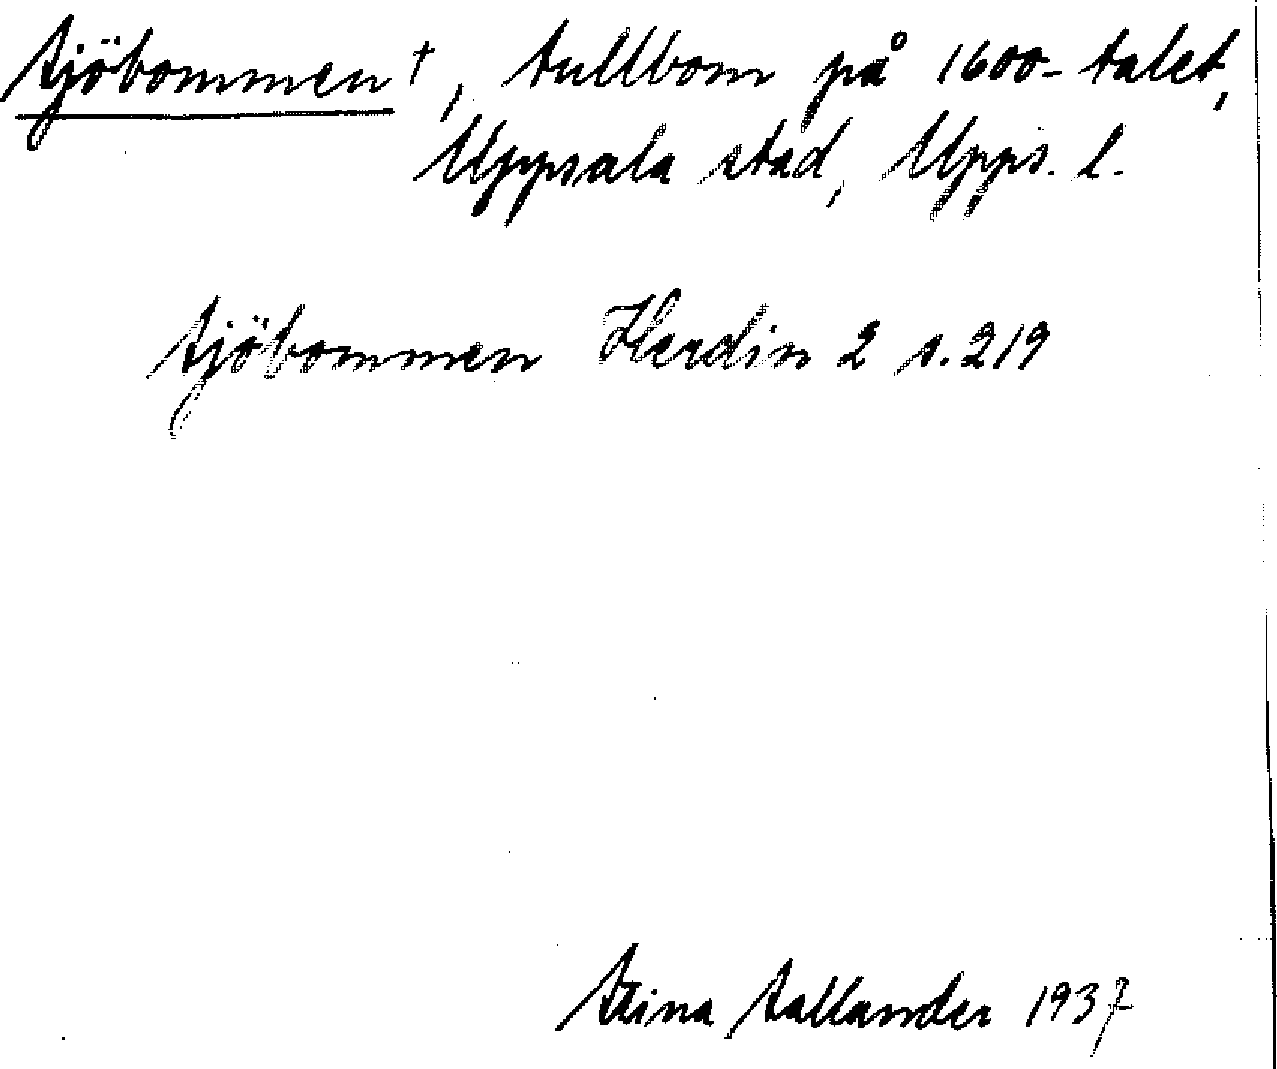 Sjöbommen †, tullbom på 1600-talet,
Uppsala stad, Upps. l.
Sjöbommen Herdin 2 s. 219
Stina Sallander 1937